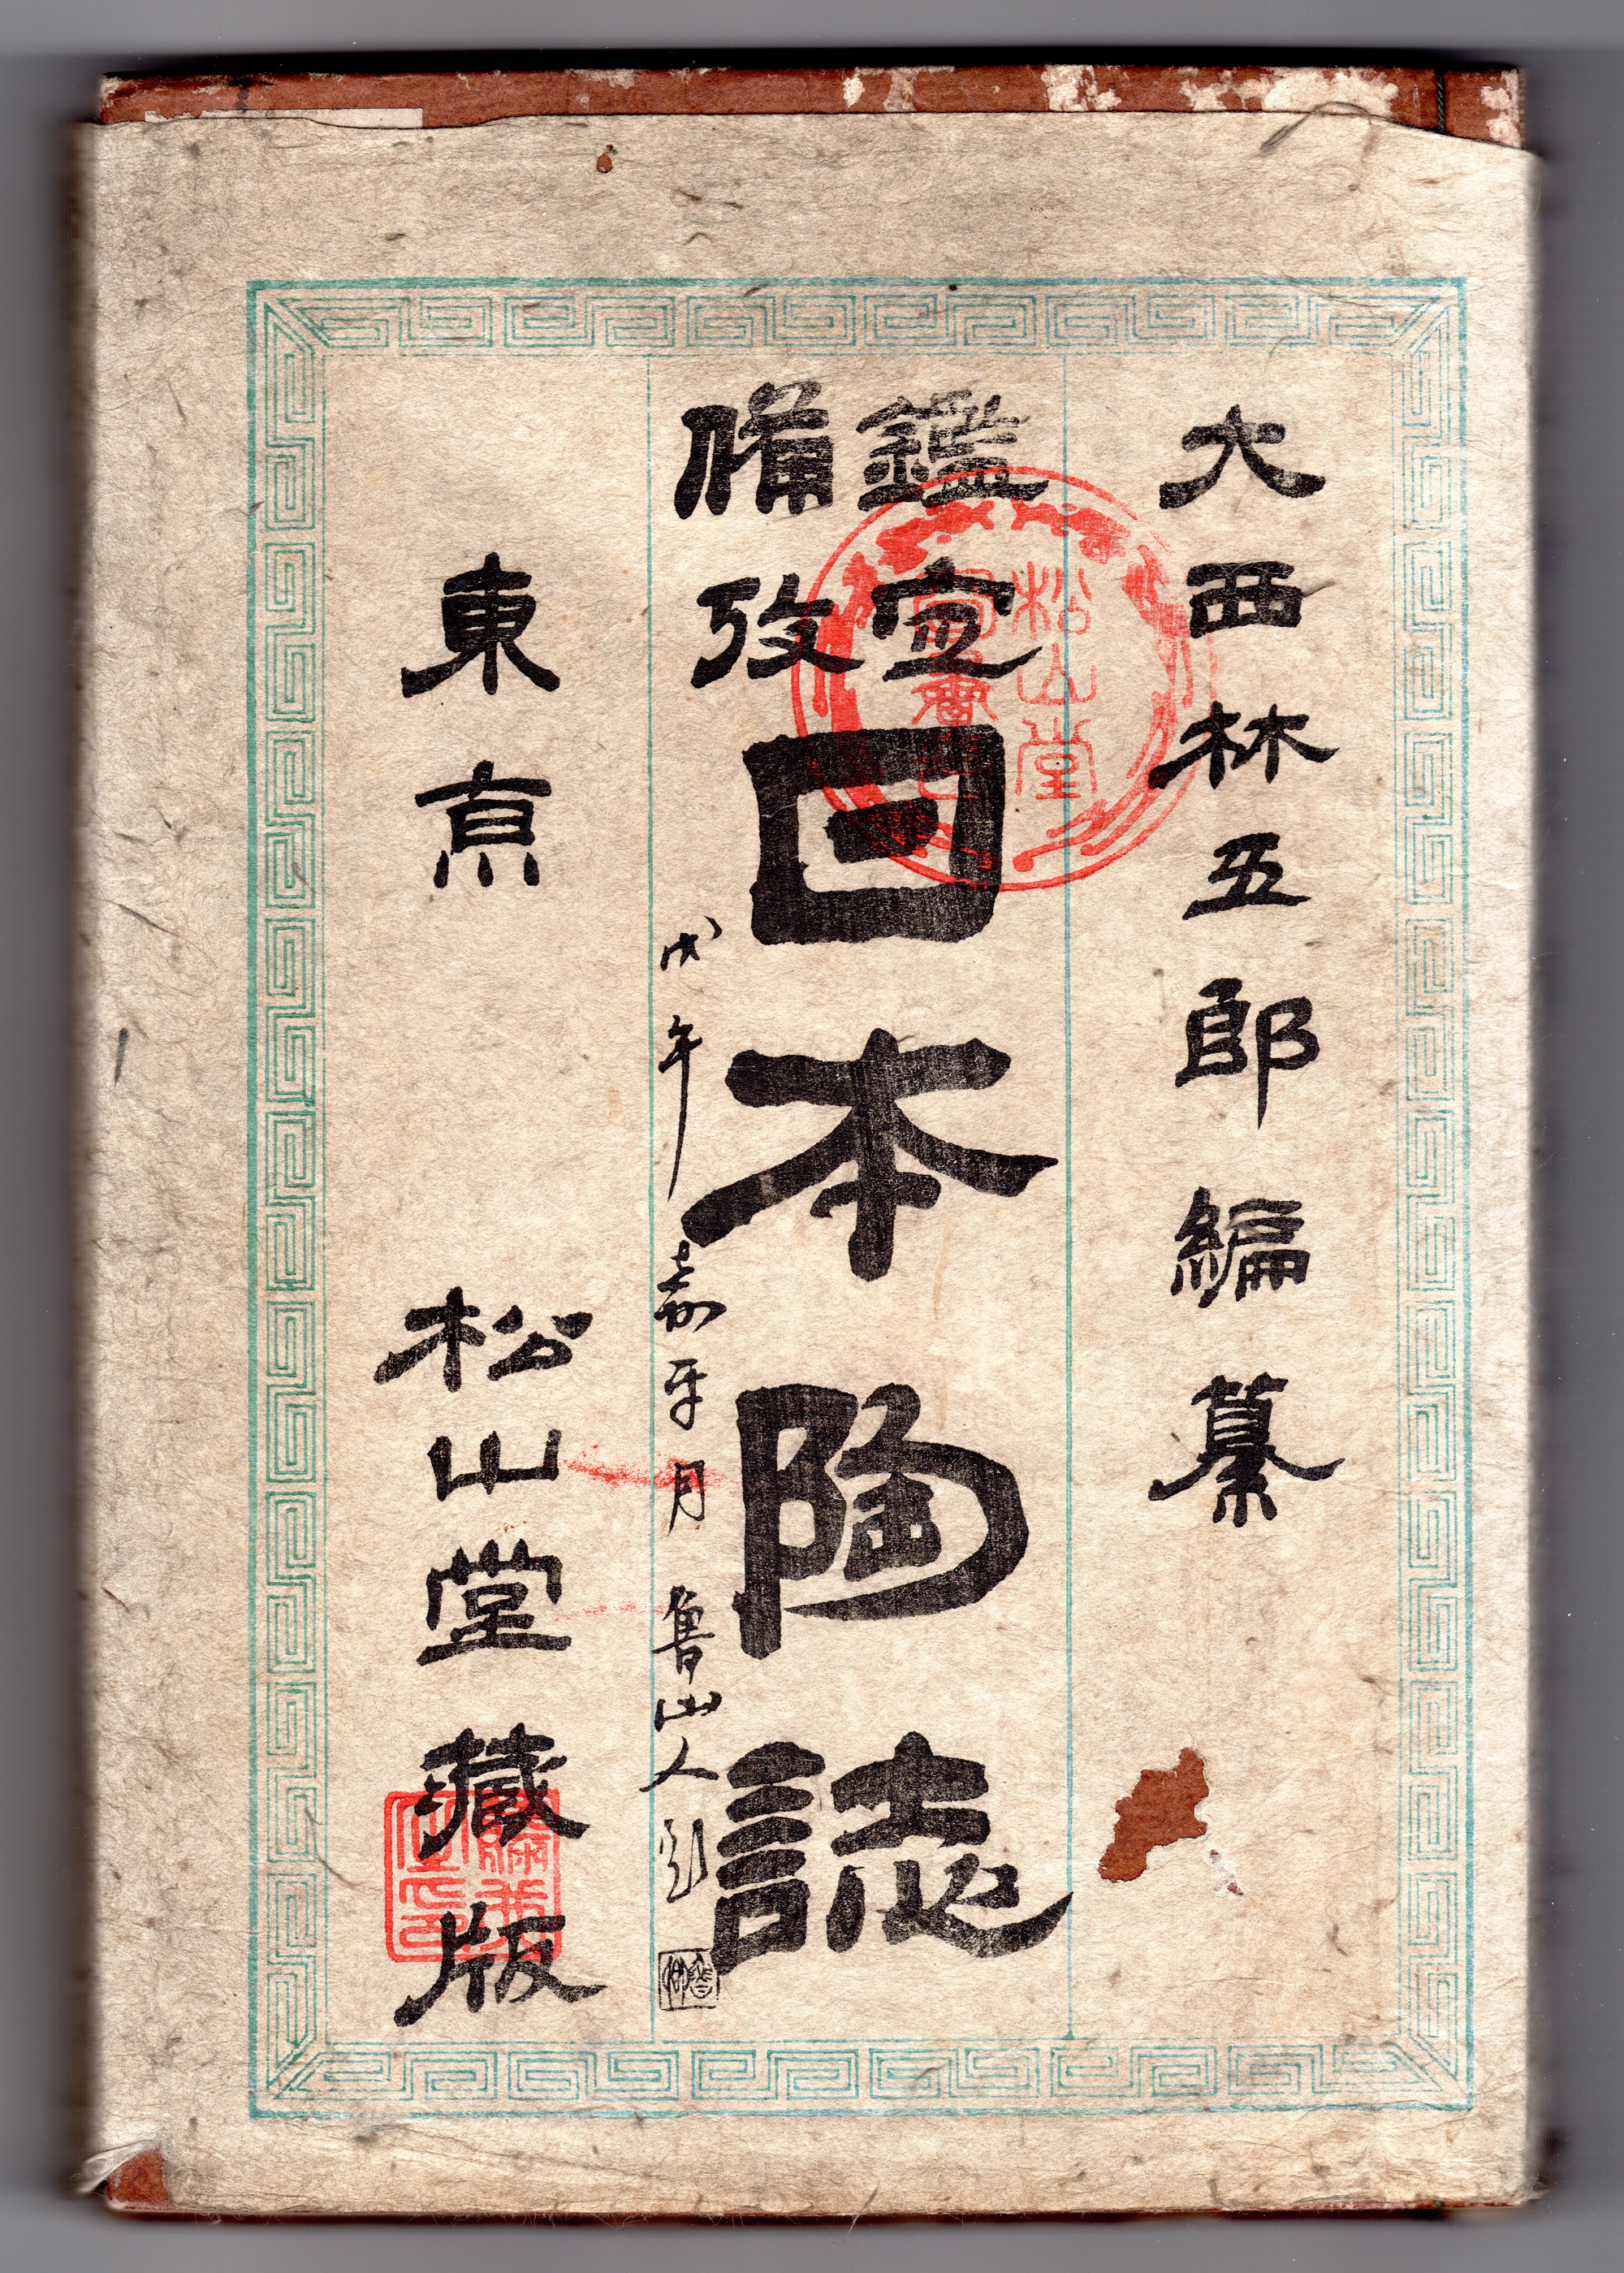 大西林五郎編纂
鑑定
備攷
日本陶誌
戊年嘉平月 魯山人題
東京 松山堂藏版
松山堂